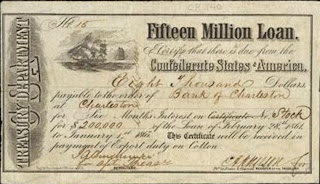 CR-140
No 16
TREASURY DEPARTMENT
Fifteen Million Loan.
I Certify that there is due from the
Confederate States of America,
Eight Thousand Dollars
payable to the order of Bank of Charleston
at Charleston
for Six Months Interest on Certificate No. Stock
for $200,000 of the Loan of February 28th 1861
to January 1st 1865 This Certificate will be received in
payment of Export duty on Cotton
for